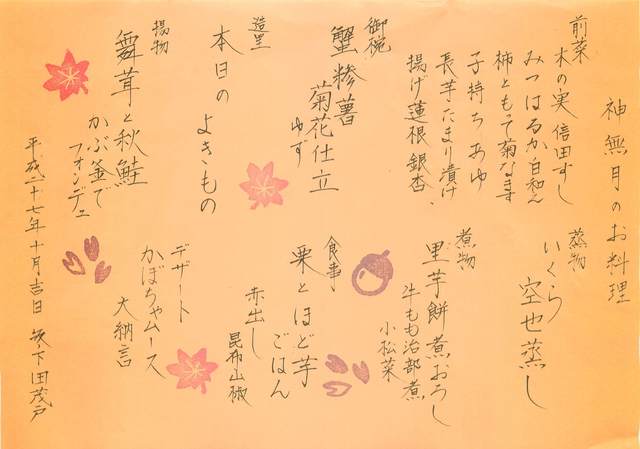 神無月のお料理
前菜
木の実 信田すし
みつはるか白和え
柿ともって菊なます
子持ちあゆ
長芋たまり漬け
揚げ蓮根 銀杏
御椀
蟹糝薯
菊花仕立
ゆず
造里
本日のよきもの
揚物
舞茸と秋鮭
かぶ釜で
フォンデュ
蒸物
いくら
空也蒸し
煮物
里芋餅煮おろし
牛もも治部煮
小松菜
食事
栗とほど芋
ごはん
赤出し
昆布山椒
デザート
かぼちゃムース
大納言
平成二十七年十月吉日